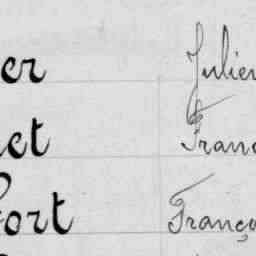 er Julien
et Franc
ort Franço